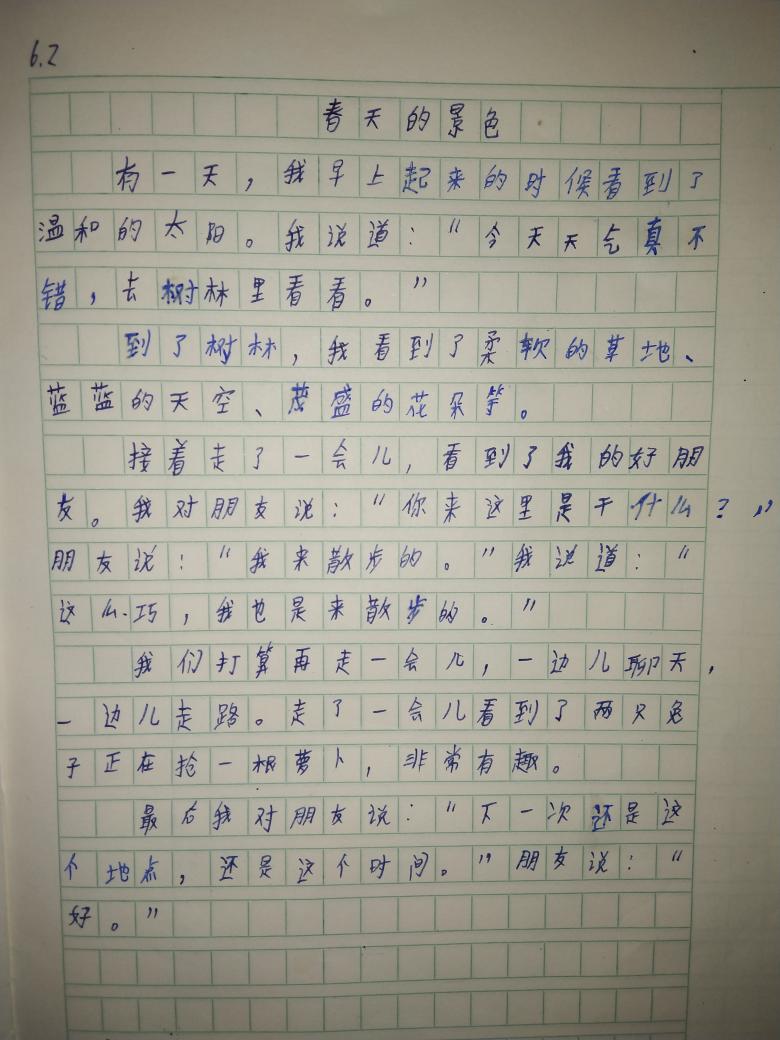 6.2
春天的景色
有一天，我早上起来的时候看到了
温和的太阳。我说道：“今天天气真不
错，去树林里看看。”
到了树林，我看到了柔软的草地、
蓝蓝的天空、茂盛的花朵等。
接着走了一会儿，看到了我的好朋
友。我对朋友说：“你来这里是干什么？”
朋友说：“我来散步的。”我说道：“
这么巧，我也是来散步的。”
我们打算再走一会儿，一边儿聊天，
一边儿走路。走了一会儿看到了两只兔
子正在抢一根萝卜，非常有趣。
最后我对朋友说：“下一次还是这
个地点，还是这个时间。”朋友说：“
好。”